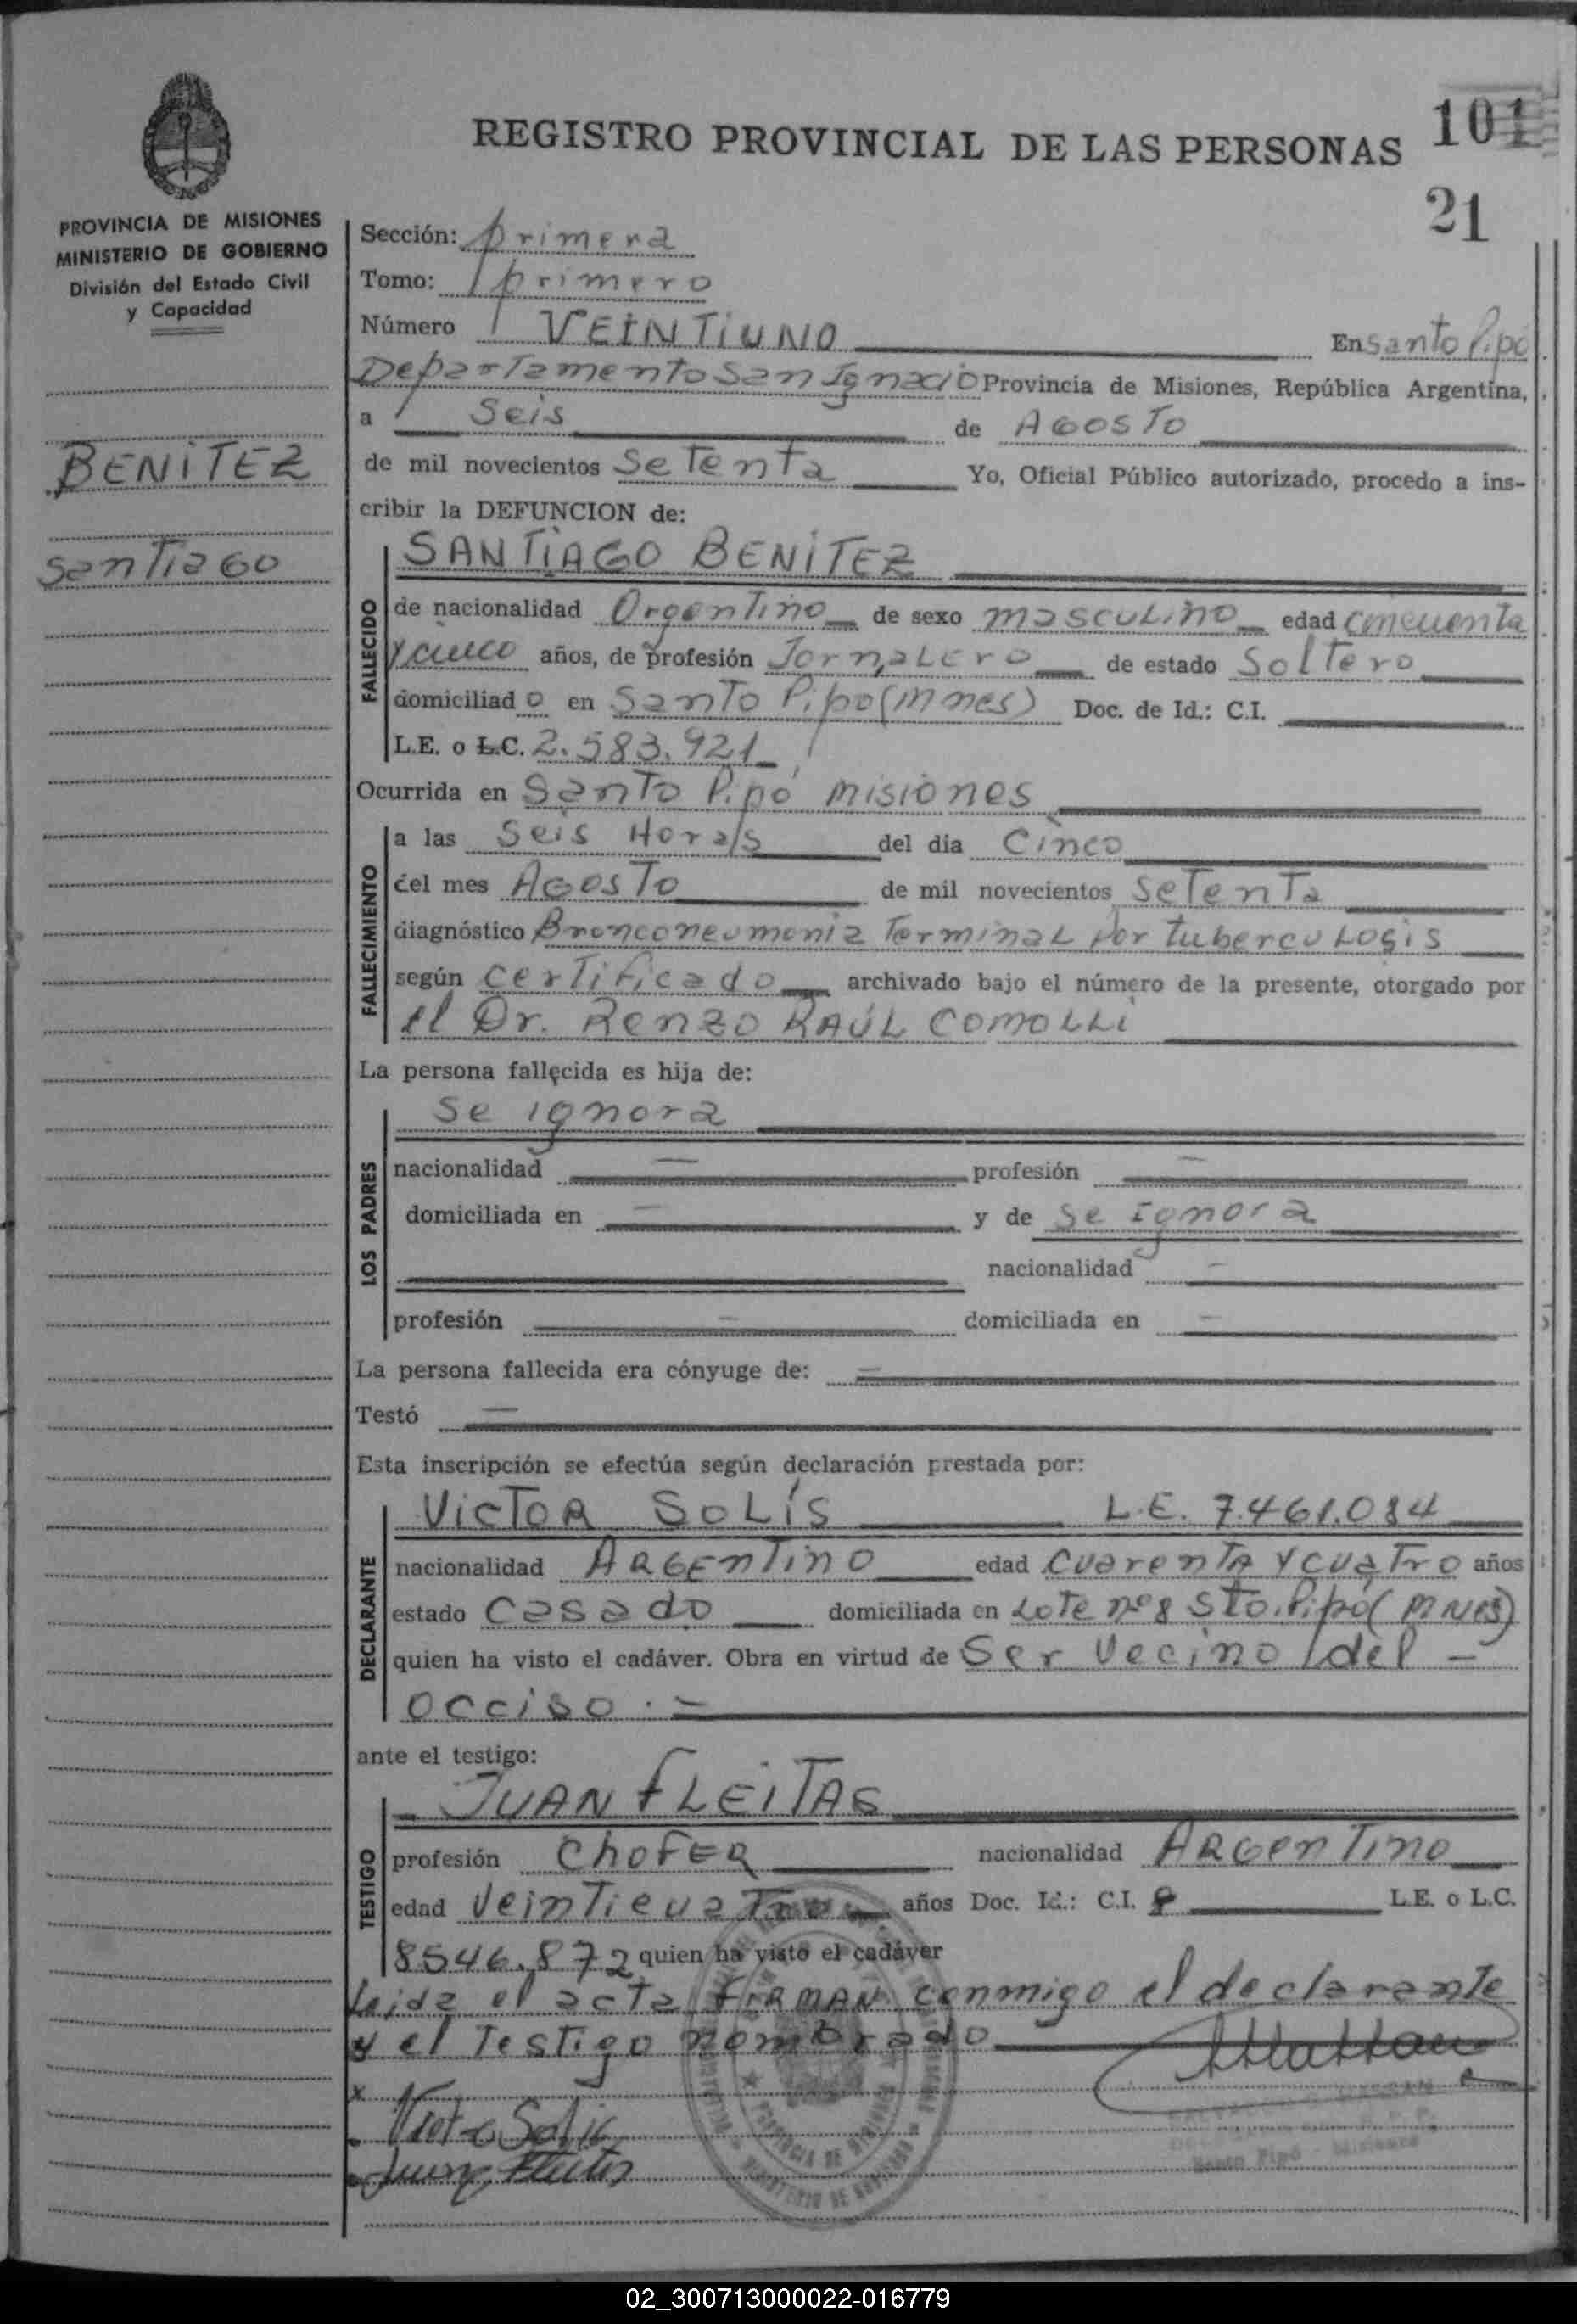 REGISTRO PROVINCIAL DE LAS PERSONAS
101
21
PROVINCIA DE MISIONES
MINISTERIO DE GOBIERNO
División del Estado Civil
y Capacidad
BENITEZ
Santiago
Sección: primera
Tomo: primero
Número VEINTIUNO En Santo Pipó
Departamento San Ignacio Provincia de Misiones, República Argentina,
a Seis de AGOSTO
de mil novecientos Setenta Yo, Oficial Público autorizado, procedo a ins-
cribir la DEFUNCION de:
FALLECIDO
SANTIAGO BENITEZ
de nacionalidad Argentino de sexo masculino edad cincuenta
y cinco años, de profesión Jornalero de estado Soltero
domiciliado en Santo Pipo (Mnes) Doc. de Id.: C.I.
L.E. o L.C. 2.583.921
Ocurrida en Santo Pipó misiones
FALLECIMIENTO
a las Seis Horas del dia Cinco
del mes AGOSTO de mil novecientos Setenta
diagnóstico Bronconeumonia Terminal por tuberculosis
según certificado archivado bajo el número de la presente, otorgado por
el Dr. Renzo RAÚL COMOLLI
La persona fallecida es hija de:
LOS PADRES
Se ignora
nacionalidad — profesión —
domiciliada en — y de Se Ignora
nacionalidad —
profesión — domiciliada en —
La persona fallecida era cónyuge de: —
Testó —
Esta inscripción se efectúa según declaración prestada por:
DECLARANTE
VICTOR SOLÍS L.E. 7.461.084
nacionalidad ARGENTINO edad Cuarenta y cuatro años
estado Casado domiciliada en Lote nº 8 Sto. Pipó (MNES)
quien ha visto el cadáver. Obra en virtud de Ser Vecino del -
occiso.-
ante el testigo:
TESTIGO
JUAN FLEITAS
profesión Chofer nacionalidad ARGENTINO
edad Veinticuatro años Doc. Id.: C.I. L.E. o L.C.
8546.872 quien ha visto el cadáver
Leida el acta FIRMAN conmigo el declarante
y el Testigo nombrado
x
Victor Solis
Juan Fleitas
PROVINCIA DE MISIONES
MINISTERIO DE GOBIERNO
Santo Pipó - Misiones
02_300713000022-016779